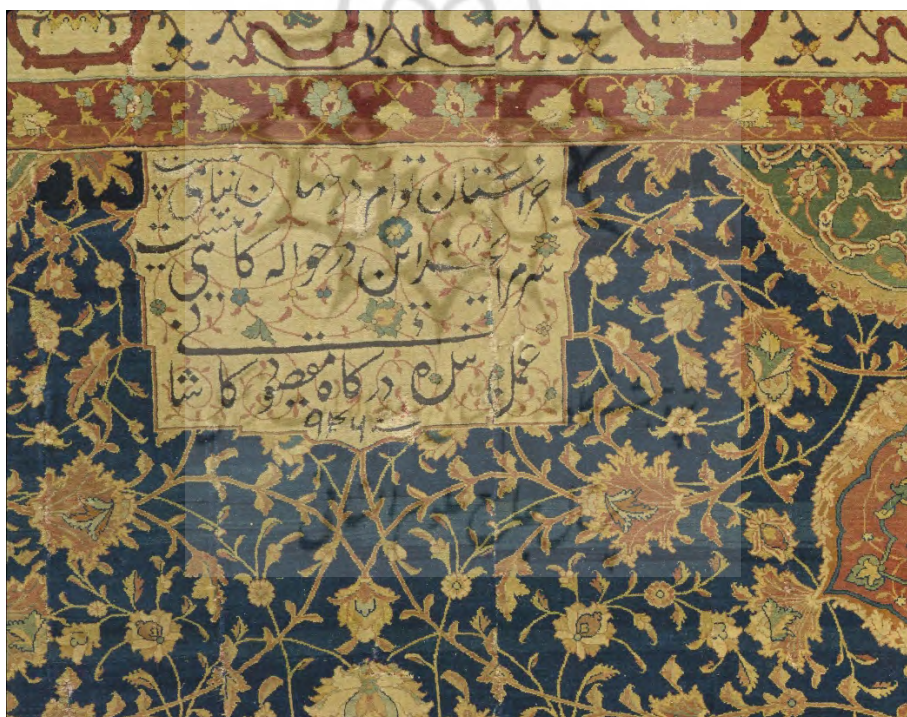 جز آستان توام در جهان پناهی نیست
سر مرا بجز این در حواله گاهی نیست
عمل بندۀ درگاه مقصود کاشانی
سنه ۹۴۶